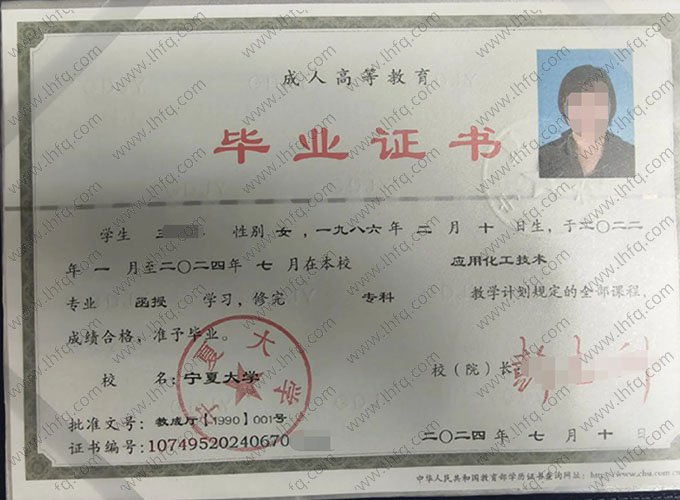 成人高等教育
毕业证书
学生 王 性别 女，一九八六年 二 月 十 日生，于二〇二二
年 一 月至二〇二四年 七 月在本校 应用化工技术
专业 函授 学习，修完 专科 教学计划规定的全部课程，
成绩合格，准予毕业。
校 名：宁夏大学
宁夏大学
校（院）长：
批准文号：教成厅【1990】001号
证书编号：10749520240670
二〇二四年 七 月 十 日
中华人民共和国教育部学历证书查询网址：http://www.chsi.com.cn
www.lhfq.com